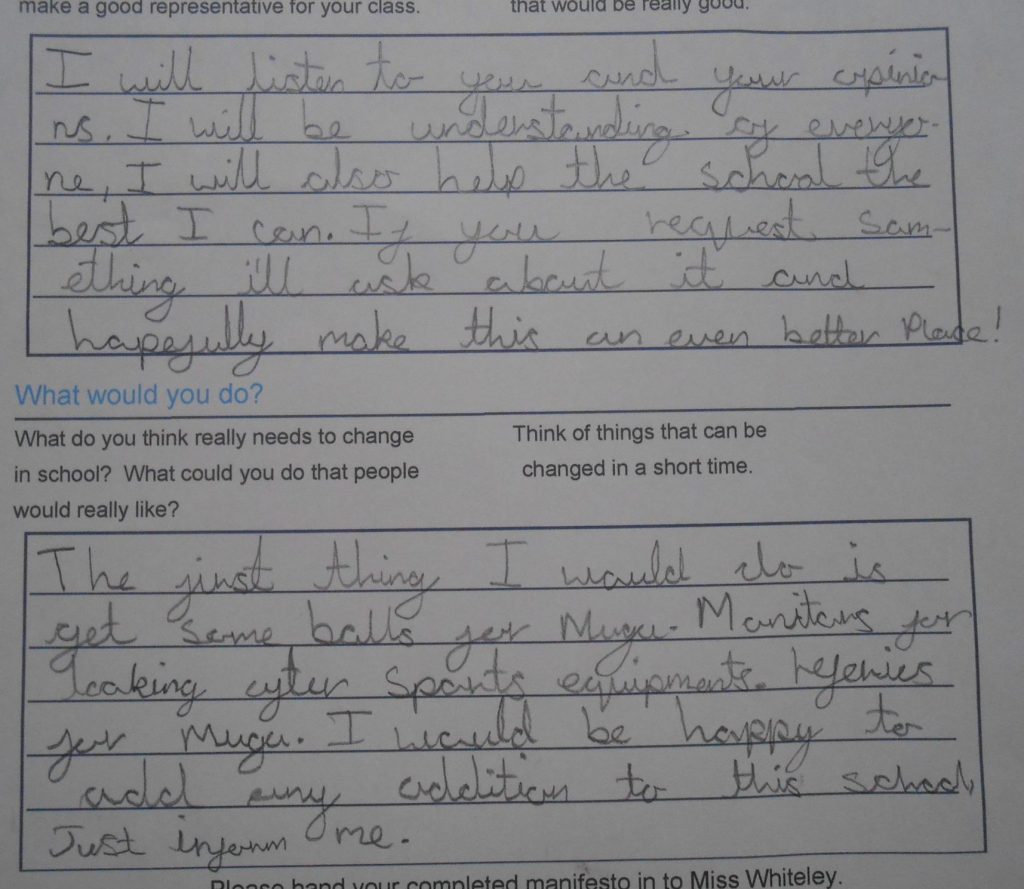 make a good representative for your class. that would be really good.
I will listen to you and your opinio
ns. I will be understanding of everyo-
ne, I will also help the school the
best I can. If you request som-
ething i'll ask about it and
hopefully make this an even better Place!
What would you do?
What do you think really needs to change
in school? What could you do that people
would really like?
Think of things that can be
changed in a short time.
The first thing I would do is
get some balls for Muga. Monitors for
looking after Sports equipments. Referies
for Muga. I would be happy to
add any addition to this school,
Just inform me.
Please hand your completed manifesto in to Miss Whiteley.